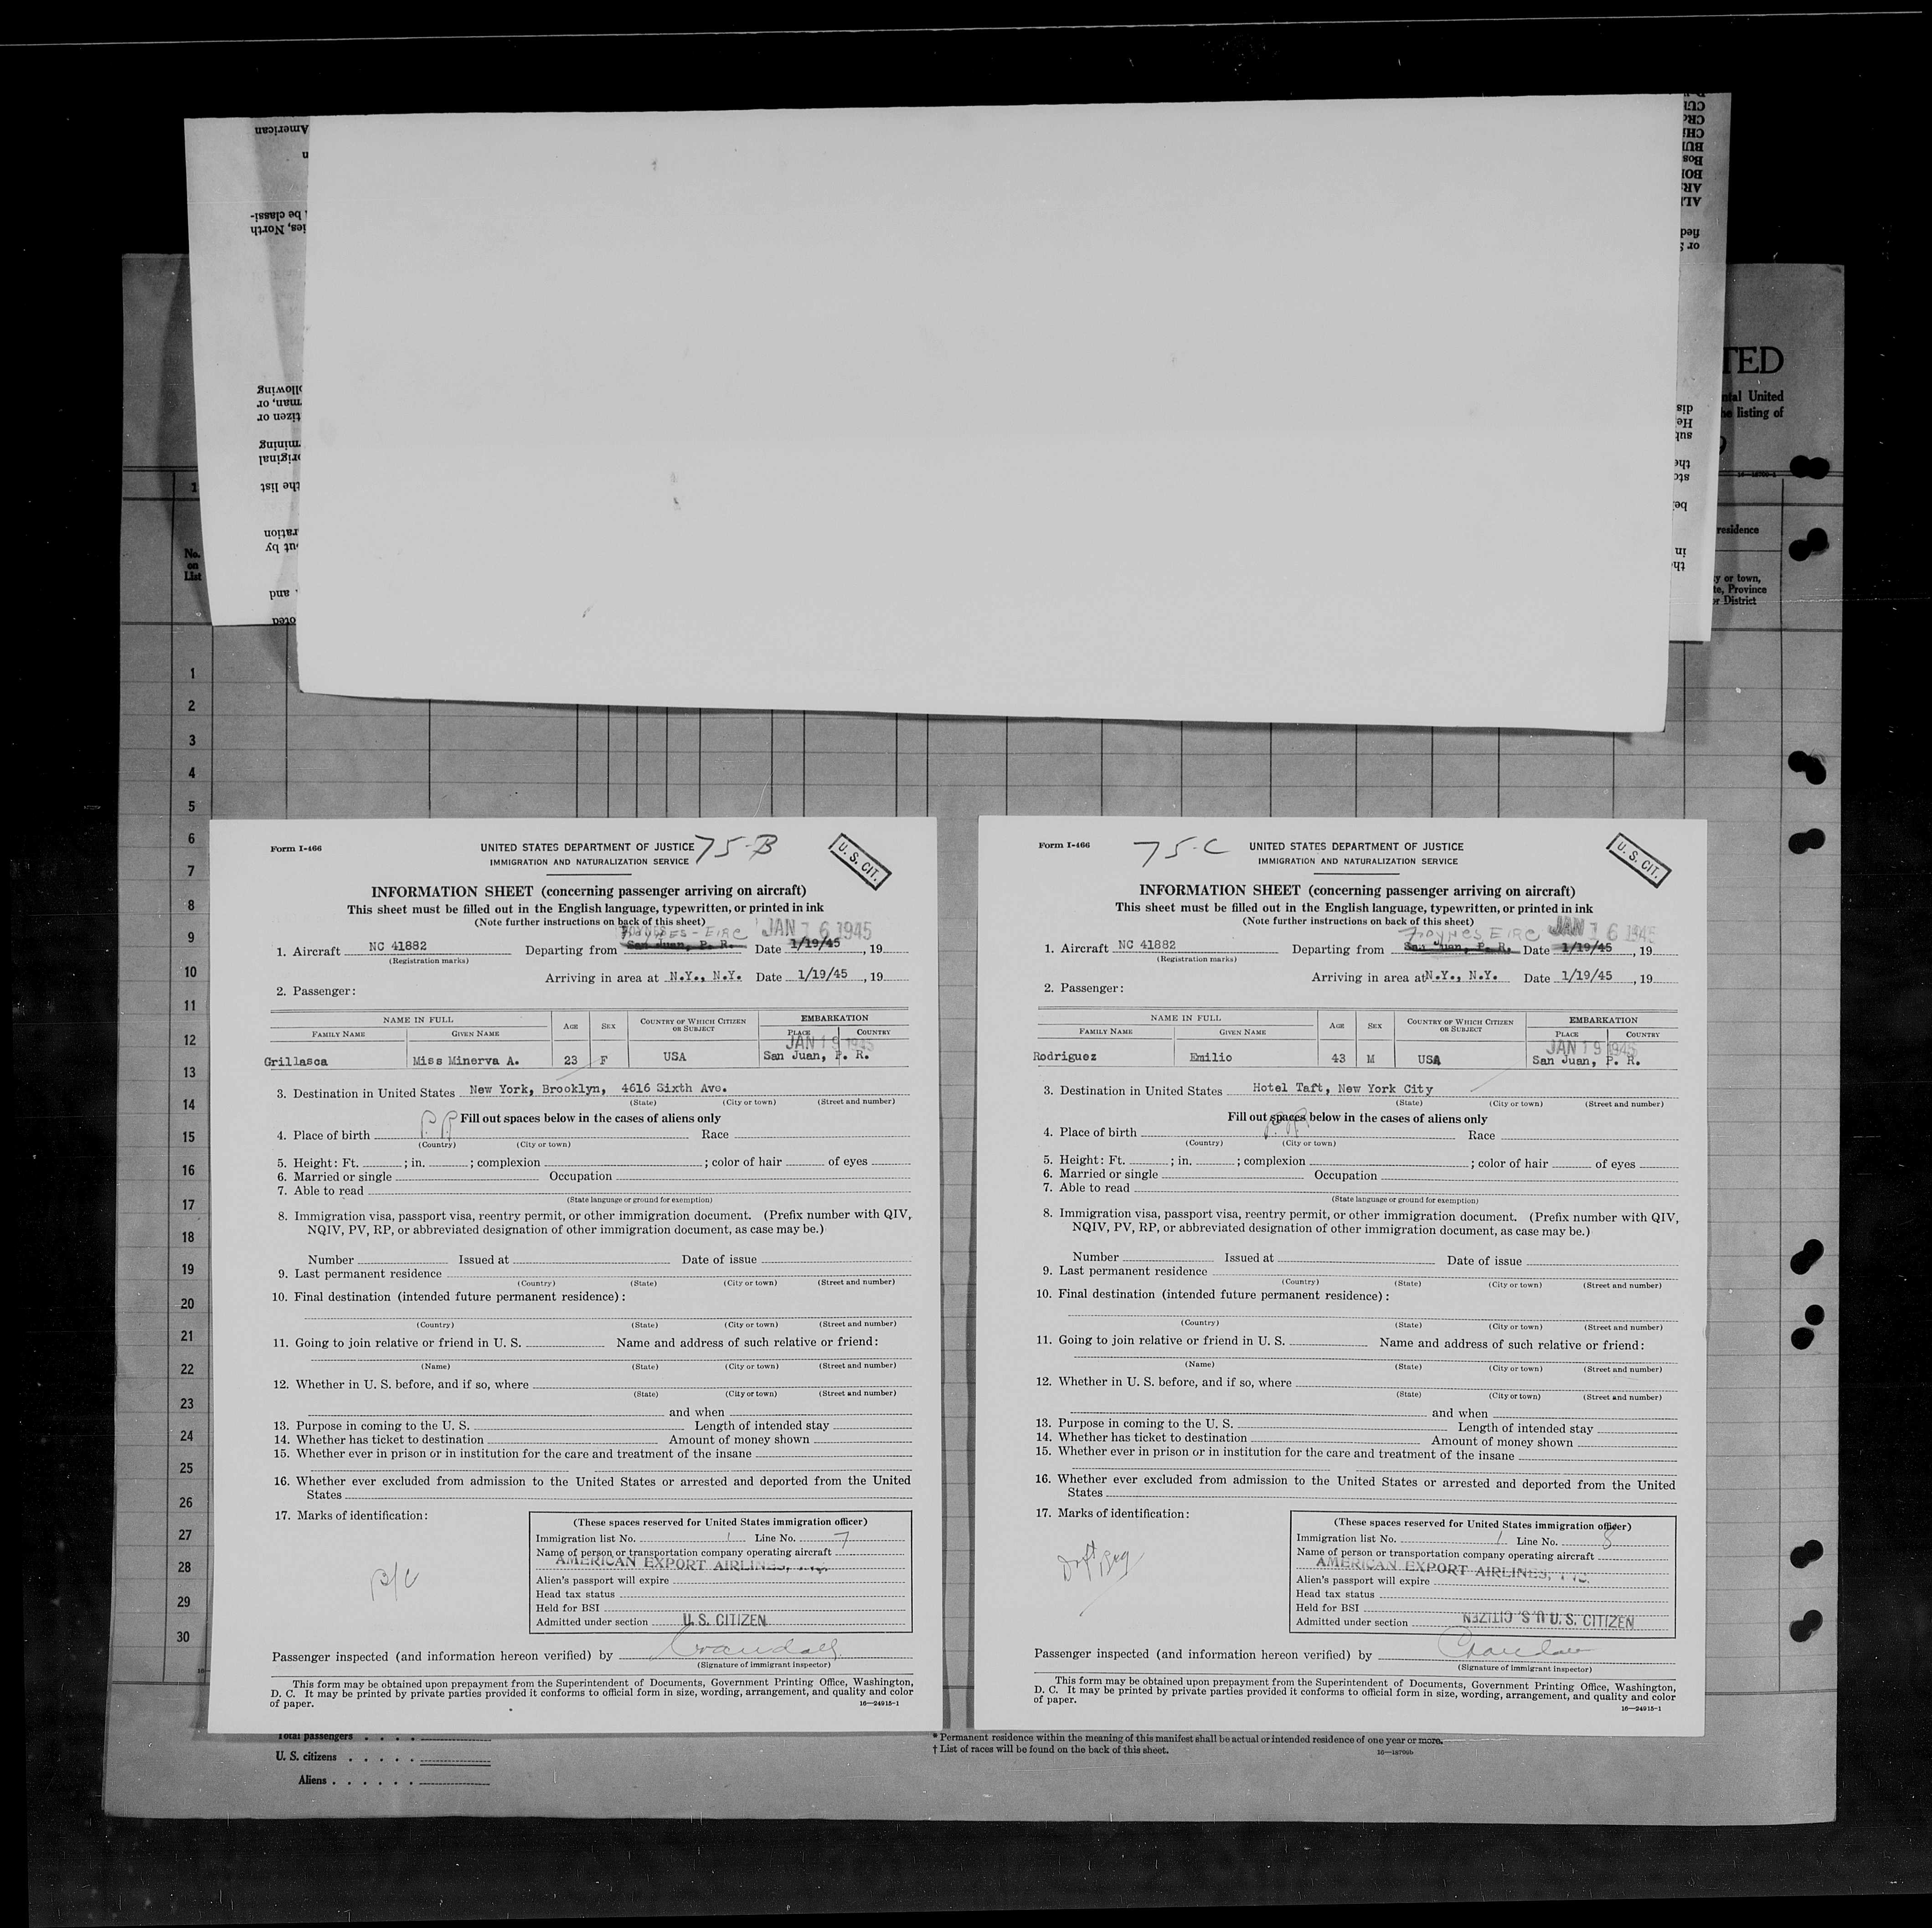 TED
ntal United
he listing of
No.
on
List
residence
y or town,
te, Province
or District
1
2
3
4
5
6
7
8
9
10
11
12
13
14
15
16
17
18
19
20
21
22
23
24
25
26
27
28
29
30
Form I-466
UNITED STATES DEPARTMENT OF JUSTICE 75-B
IMMIGRATION AND NATURALIZATION SERVICE
U. S. CIT.
INFORMATION SHEET (concerning passenger arriving on aircraft)
This sheet must be filled out in the English language, typewritten, or printed in ink
(Note further instructions on back of this sheet)
FOYNES - EIRE JAN 16 1945
1. Aircraft NC 41882 Departing from San Juan, P. R. Date 1/19/45, 19
(Registration marks)
Arriving in area at N.Y., N.Y. Date 1/19/45, 19
2. Passenger:
NAME IN FULL AGE SEX COUNTRY OF WHICH CITIZEN OR SUBJECT EMBARKATION
FAMILY NAME GIVEN NAME PLACE COUNTRY
JAN 19 1945
Grillasca Miss Minerva A. 23 F USA San Juan, P. R.
3. Destination in United States New York, Brooklyn, 4616 Sixth Ave.
(State) (City or town) (Street and number)
Fill out spaces below in the cases of aliens only
4. Place of birth P.R. Race
(Country) (City or town)
5. Height: Ft. ; in. ; complexion ; color of hair of eyes
6. Married or single Occupation
7. Able to read
(State language or ground for exemption)
8. Immigration visa, passport visa, reentry permit, or other immigration document. (Prefix number with QIV,
NQIV, PV, RP, or abbreviated designation of other immigration document, as case may be.)
Number Issued at Date of issue
9. Last permanent residence
(Country) (State) (City or town) (Street and number)
10. Final destination (intended future permanent residence):
(Country) (State) (City or town) (Street and number)
11. Going to join relative or friend in U. S. Name and address of such relative or friend:
(Name) (State) (City or town) (Street and number)
12. Whether in U. S. before, and if so, where
(State) (City or town) (Street and number)
and when
13. Purpose in coming to the U. S. Length of intended stay
14. Whether has ticket to destination Amount of money shown
15. Whether ever in prison or in institution for the care and treatment of the insane
16. Whether ever excluded from admission to the United States or arrested and deported from the United
States
17. Marks of identification:
B/C
(These spaces reserved for United States immigration officer)
Immigration list No. 1 Line No. 7
Name of person or transportation company operating aircraft
AMERICAN EXPORT AIRLINES, INC.
Alien's passport will expire
Head tax status
Held for BSI
Admitted under section U. S. CITIZEN
Passenger inspected (and information hereon verified) by Crandall
(Signature of immigrant inspector)
This form may be obtained upon prepayment from the Superintendent of Documents, Government Printing Office, Washington,
D. C. It may be printed by private parties provided it conforms to official form in size, wording, arrangement, and quality and color
of paper. 16—24915-1
Form I-466
75-C UNITED STATES DEPARTMENT OF JUSTICE
IMMIGRATION AND NATURALIZATION SERVICE
U. S. CIT.
INFORMATION SHEET (concerning passenger arriving on aircraft)
This sheet must be filled out in the English language, typewritten, or printed in ink
(Note further instructions on back of this sheet)
FOYNES EIRE JAN 16 1945
1. Aircraft NC 41882 Departing from San Juan, P. R. Date 1/19/45, 19
(Registration marks)
Arriving in area at N.Y., N.Y. Date 1/19/45, 19
2. Passenger:
NAME IN FULL AGE SEX COUNTRY OF WHICH CITIZEN OR SUBJECT EMBARKATION
FAMILY NAME GIVEN NAME PLACE COUNTRY
JAN 19 1945
Rodriguez Emilio 43 M USA San Juan, P. R.
3. Destination in United States Hotel Taft, New York City
(State) (City or town) (Street and number)
Fill out spaces below in the cases of aliens only
4. Place of birth P.R. Race
(Country) (City or town)
5. Height: Ft. ; in. ; complexion ; color of hair of eyes
6. Married or single Occupation
7. Able to read
(State language or ground for exemption)
8. Immigration visa, passport visa, reentry permit, or other immigration document. (Prefix number with QIV,
NQIV, PV, RP, or abbreviated designation of other immigration document, as case may be.)
Number Issued at Date of issue
9. Last permanent residence
(Country) (State) (City or town) (Street and number)
10. Final destination (intended future permanent residence):
(Country) (State) (City or town) (Street and number)
11. Going to join relative or friend in U. S. Name and address of such relative or friend:
(Name) (State) (City or town) (Street and number)
12. Whether in U. S. before, and if so, where
(State) (City or town) (Street and number)
and when
13. Purpose in coming to the U. S. Length of intended stay
14. Whether has ticket to destination Amount of money shown
15. Whether ever in prison or in institution for the care and treatment of the insane
16. Whether ever excluded from admission to the United States or arrested and deported from the United
States
17. Marks of identification:
(These spaces reserved for United States immigration officer)
Immigration list No. 1 Line No. 8
Name of person or transportation company operating aircraft
AMERICAN EXPORT AIRLINES, INC.
Alien's passport will expire
Head tax status
Held for BSI
Admitted under section U. S. CITIZEN U. S. CITIZEN
Passenger inspected (and information hereon verified) by Crandall
(Signature of immigrant inspector)
This form may be obtained upon prepayment from the Superintendent of Documents, Government Printing Office, Washington,
D. C. It may be printed by private parties provided it conforms to official form in size, wording, arrangement, and quality and color
of paper. 16—24915-1
Total passengers
U. S. citizens
Aliens
* Permanent residence within the meaning of this manifest shall be actual or intended residence of one year or more.
† List of races will be found on the back of this sheet.